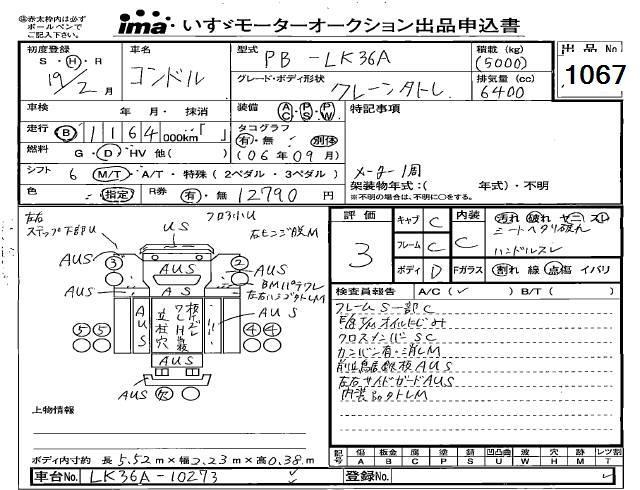 ※赤太枠内は必ず
ボールペンで
ご記入下さい。
ima いすゞモーターオークション出品申込書
初度登録
S・H・R
19/2月
車名
コンドル
型式
PB-LK36A
グレード・ボディ形状
クレーンタトレ
積載(kg)
(5000)
排気量(cc)
6400
出品No
1067
車検 年 月・ 抹消
装備 AC PS PW
特記事項
走行 B 1164,000km「 」
タコグラフ
有・無 別体
(06年09月)
燃料 G・D・HV 他( )
メーター1周
シフト 6 M/T・A/T・特殊(2ペダル・3ペダル)
架装物年式:( 年式)・不明
※不明の場合は、不明に○をする。
色 指定 R券 有・無 12790円
左右
ステップ下部U
フロ3小U
US
左ヒンジ段M
AUS ③ ② AUS
AUS
AUS AS
BMパラフレ
左右ハンゴタトLM
AUS
AUS
⑤⑤ ④④
立柱穴
AUS
AUS 欠
上物情報
ボディ内寸約 長5.52m×幅2.23m×高0.38m
車台No. LK36A-10273
評価
3
キャブ C
フレーム C
ボディ D
内装
C
Fガラス
汚れ 破れ ヤニ スレ
シートヘタリ破れ
ハンドルスレ
割れ 線 点傷 イバリ
検査員報告 A/C(✓) B/T( )
フレームS一部C
E/G T/M オイルにじみ
クロスメンバーSC
カンバン有・消しM
前立鳥居鉄板AUS
左右サイドガードAUS
内装品タトレM
記号
傷 板金 腐 塗 サビ 凹凸曲 波 穴 跡 レツ割
A B C P S U W H M T
登録No.